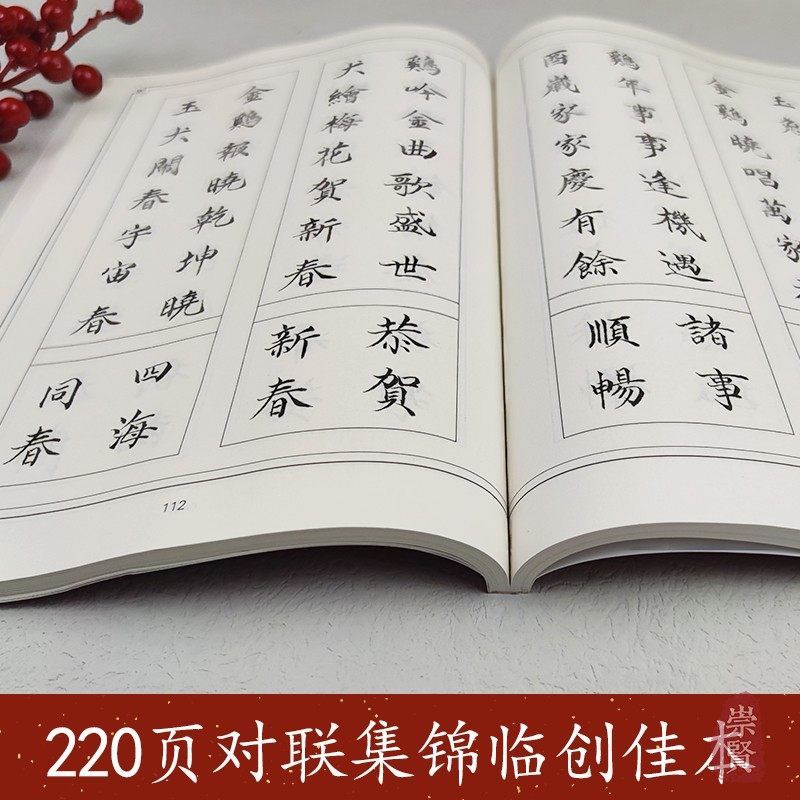 金鷄曉唱萬家
鷄年事事逢機遇
酉歲家家慶有餘
諸事
順暢
鷄吟金曲歌盛世
犬繪梅花賀新春
恭賀
新春
金鷄報曉乾坤曉
玉犬鬧春宇宙春
四海
同春
112
220页对联集锦临创佳本
崇賢